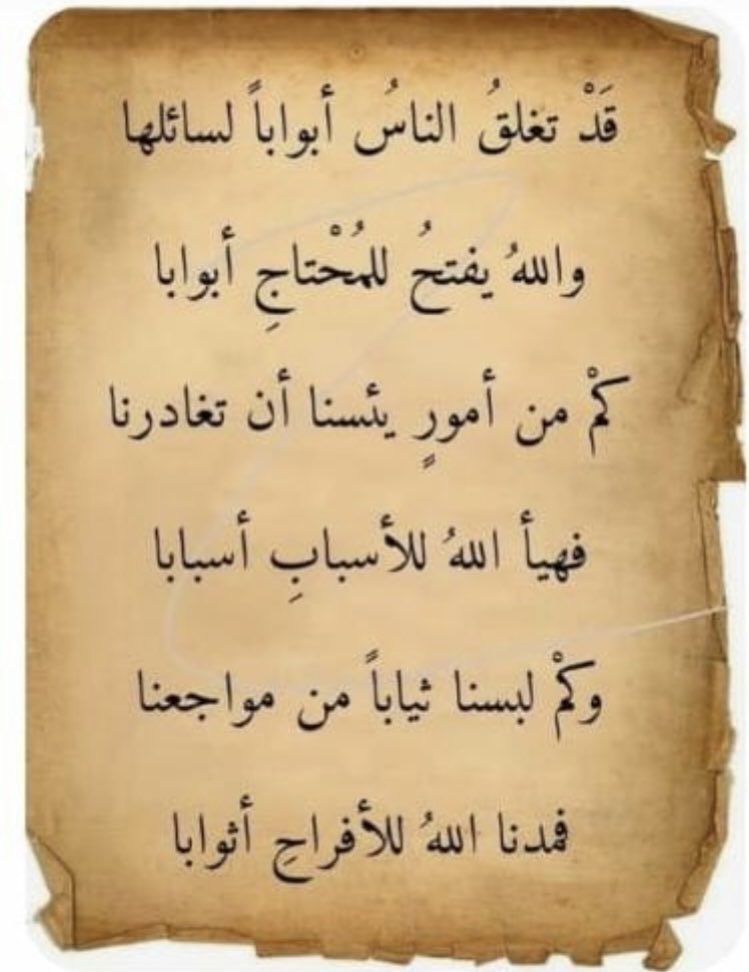 قَدْ تغلقُ الناسُ أبواباً لسائلها
واللهُ يفتحُ للمُحْتاجِ أبوابا
كمْ من أمورٍ يئسنا أن تغادرنا
فهيأ اللهُ للأسبابِ أسبابا
وكمْ لبسنا ثياباً من مواجعنا
فمدنا اللهُ للأفراحِ أثوابا